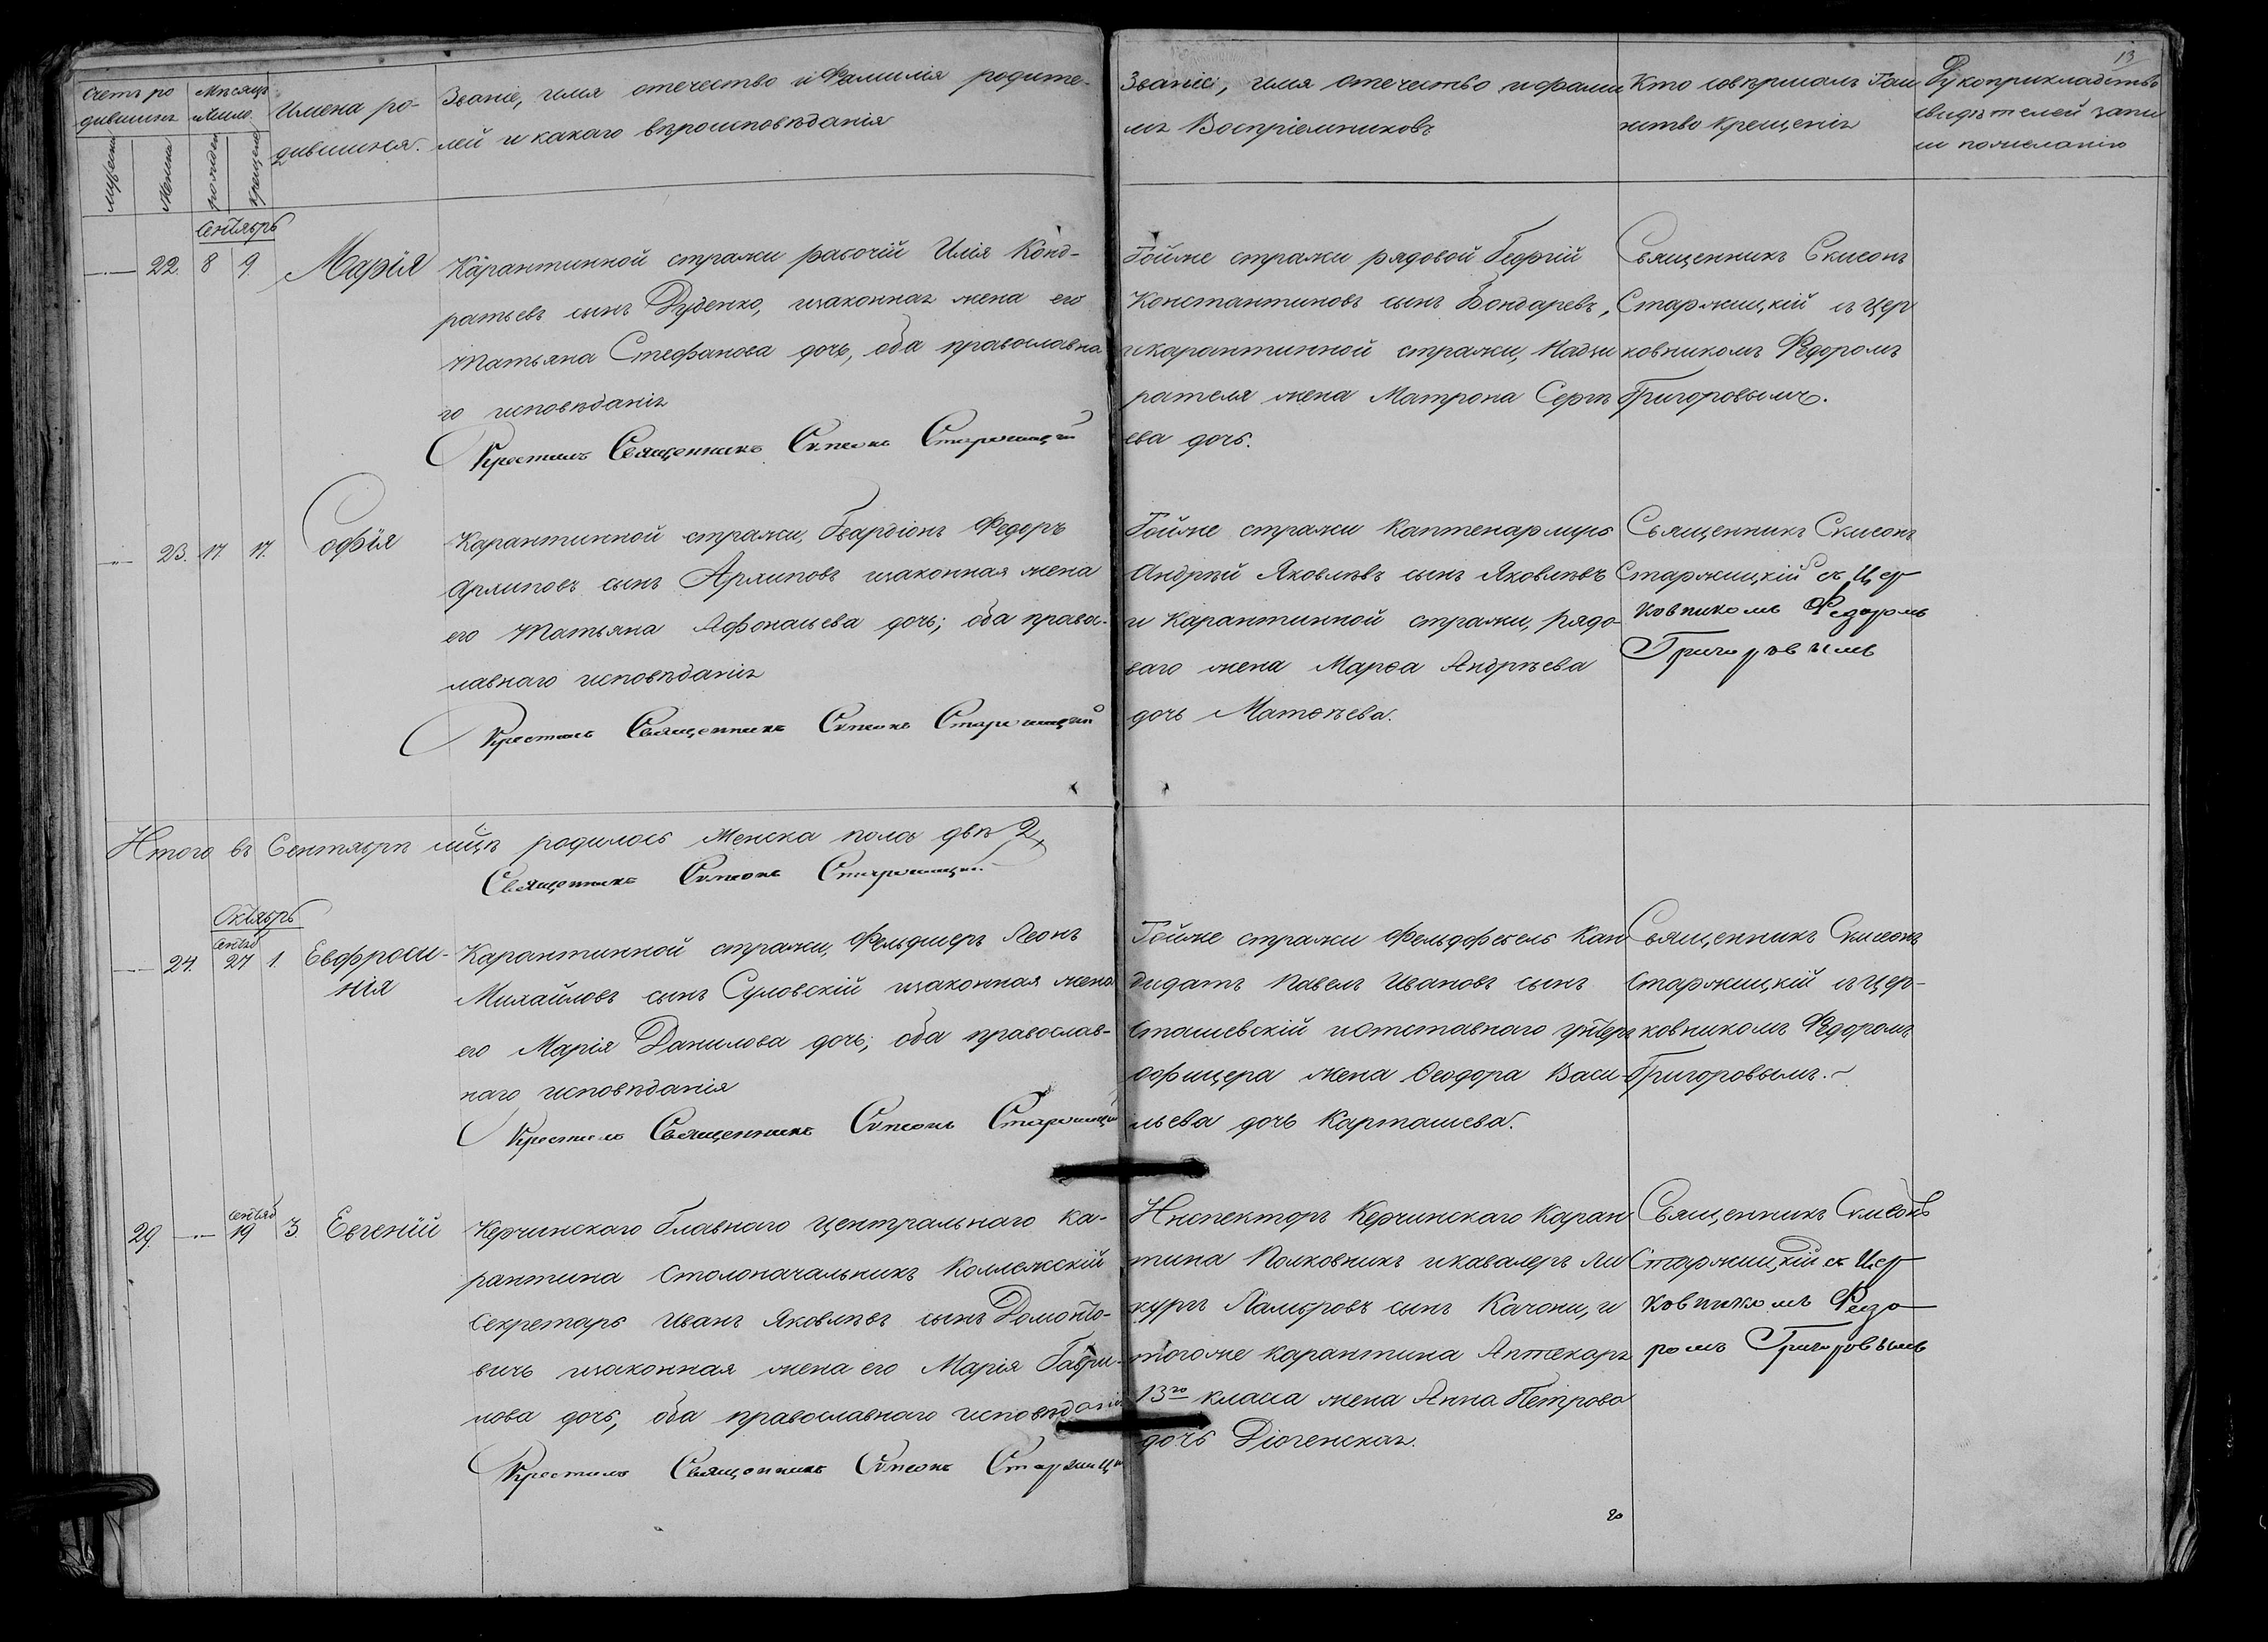 13
Счетъ ро
дившихъ
мужеска
женска
Мѣсяцъ
и число.
рожден
крещен
Имена ро-
дившихся.
Званіе, имя отечество и Фамилія родите-
лей и какаго вѣроисповѣданія
Званіе, имя отечество и фами
лія Воспріемниковъ
Кто совѣршалъ Таи
нство Крещенія
Рукоприкладство
свидѣтелей запи
си пожеланію
Сентябрь
22. 8 9. Марія
Карантинной стражи рабочій Илія Конд-
ратьевъ сынъ Дуденко, изаконная жена его
Татьяна Стефанова дочь, оба православна
го исповѣданія
Крестилъ Священникъ Симеонъ Старжицкій
Тойже стражи рядовой Георгій
Константиновъ сынъ Бондаревъ,
икарантинной стражи, Надзи
рателя жена Матрона Сергѣ
ева дочь.
Священникъ Симеонъ
Старжицкій съ Цер
ковникомъ Федоромъ
Григоровымъ.
23. 17. 17. Софія
Карантинной стражи, Гвардіонъ Федоръ
Архиповъ сынъ Архиповъ изаконная жена
его Татьяна Афонасьева дочь; оба право-
славнаго исповѣданія
Крестилъ Священникъ Симеонъ Старжицкій
Тойже стражи Каптенармусъ
Андрѣй Яковлѣвъ сынъ Яковлѣвъ
и Карантинной стражи, рядо
ваго жена Марѳа Андрѣева
дочь Матвѣева.
Священникъ Симеонъ
Старжицкій съ Цер
ковникомъ Федоромъ
Григоровымъ
Итого въ Сентябрѣ мцѣ родилось Женска пола двѣ 2
Священникъ Симеонъ Старжицкій
Октябрь
24. Сентяб 27 1. Евфроси-
нія
Карантинной стражи, Фельдшеръ Леонъ
Михайловъ сынъ Суловскій изаконная жена
его Марія Данилова дочь; оба православ-
наго исповѣданія
Крестилъ Священникъ Симеонъ Старжицкій
Тойже стражи Фельдфебель Кан
дидатъ Павелъ Ивановъ сынъ
Сташевскій иотставнаго унтеръ
офицера жена Ѳеодора Васи-
льева дочь Карташева.
Священникъ Симеонъ
Старжицкій съ Цер-
ковникомъ Федоромъ
Григоровымъ.
29. Сентяб 19 3. Евгеній
Керчинскаго Главнаго Центральнаго Ка-
рантина Столоначальникъ Коллежскій
Секретарь Иванъ Яковлѣвъ сынъ Домонто-
вичъ изаконная жена его Марія Гаври-
лова дочь, оба православнаго исповѣданія
Крестилъ Священникъ Симеонъ Старжицкій
Инспекторъ Керчинскаго Каран
тина Полковникъ икавалеръ Ли
кургъ Ламбровъ сынъ Качони, и
тогоже карантина Аптекаря
13го класса жена Анна Петрова
дочь Діогенская.
Священникъ Симеонъ
Старжицкій съ Цер
ковникомъ Федо
ромъ Григоровымъ